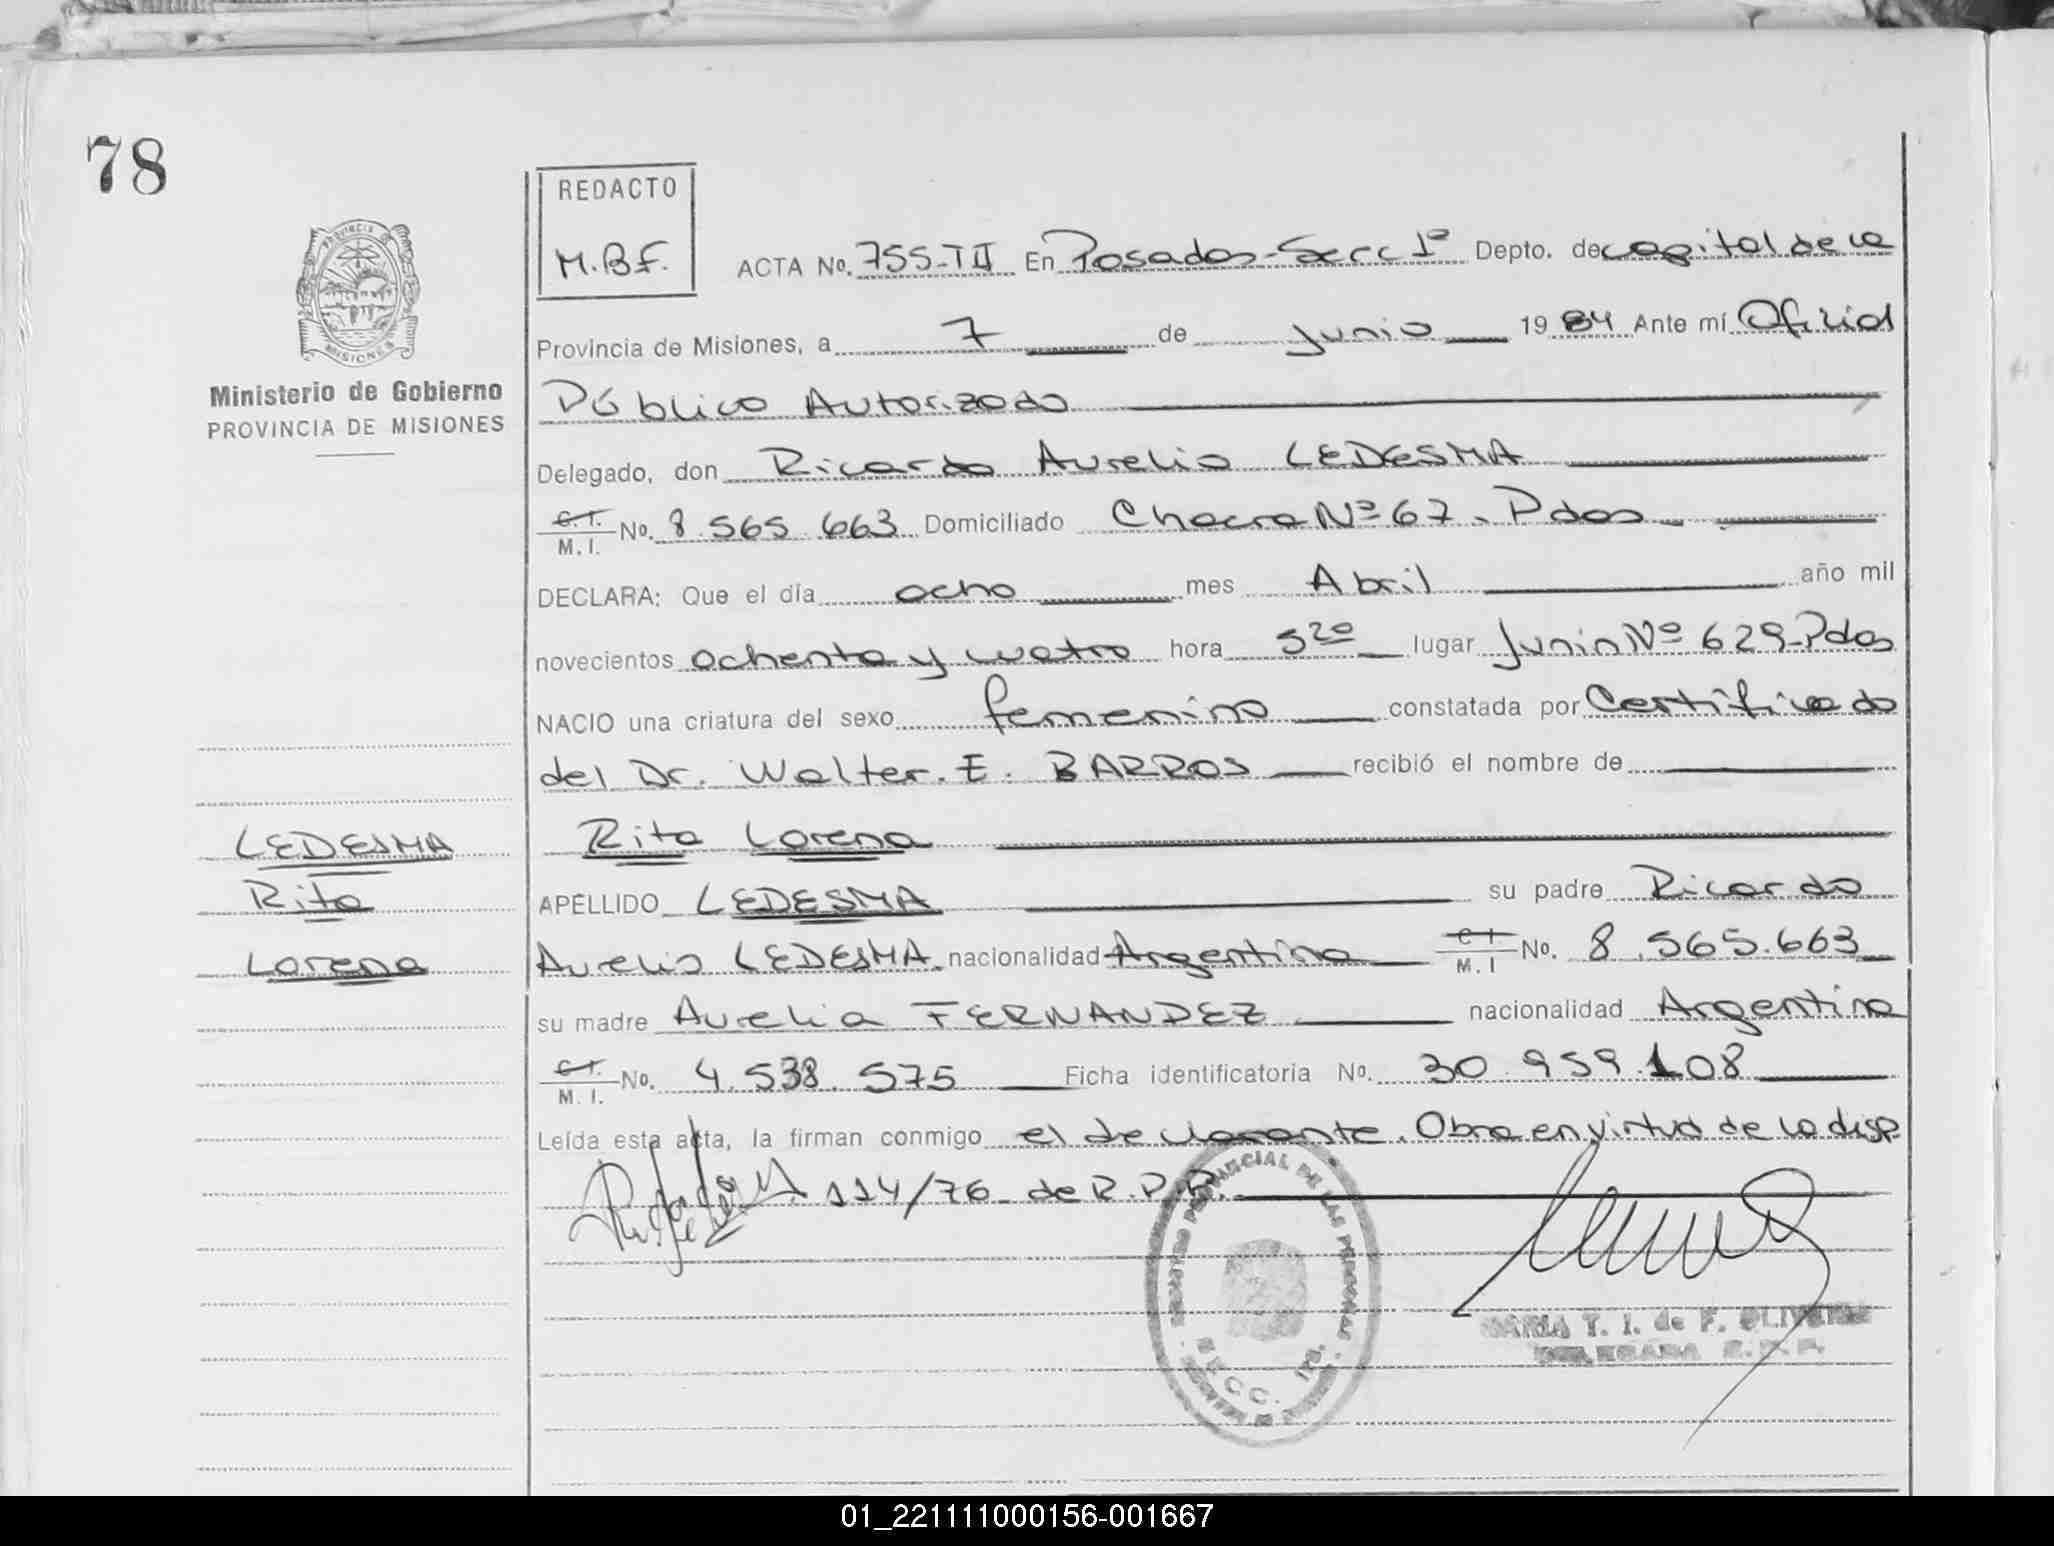 78
REDACTO
M.B.F.
ACTA No. 755-TII En Posadas-Secc 1ª Depto. de capital de la
PROVINCIA DE
MISIONES
Ministerio de Gobierno
PROVINCIA DE MISIONES
Provincia de Misiones, a 7 de Junio 1984 Ante mí Oficial
Público Autorizado
Delegado, don Ricardo Aurelio LEDESMA
C.I.
M.I. No. 8.565.663 Domiciliado Chacra Nº 67. Pdas
DECLARA: Que el día ocho mes Abril año mil
novecientos ochenta y cuatro hora 5 20 lugar Junin Nº 629-Pdas
NACIO una criatura del sexo femenino constatada por Certificado
del Dr. Walter. E. BARROS recibió el nombre de
Rita Lorena
LEDESMA
Rita
Lorena
APELLIDO LEDESMA su padre Ricardo
Aurelio LEDESMA nacionalidad Argentina C I
M. I No. 8.565.663
su madre Aurelia FERNANDEZ nacionalidad Argentina
C.I.
M. I. No. 4.538.575 Ficha identificatoria No. 30.959.108
Leída esta acta, la firman conmigo el declarante. Obra en virtud de la disp
114/76 de R.P.P.
PROVINCIAL DE LAS PERSONAS
SECC. 1ª
MARIA T. I. de F. OLIVEIRA
DELEGADA R.P.P.
01_221111000156-001667